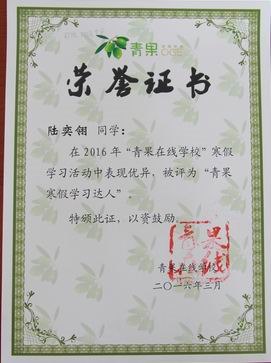 青果
荣誉证书
陆奕翎 同学：
在2016年“青果在线学校”寒假
学习活动中表现优异，被评为“青果
寒假学习达人”。
特颁此证，以资鼓励。
青果在线学校
二〇一六年三月
青果
在线